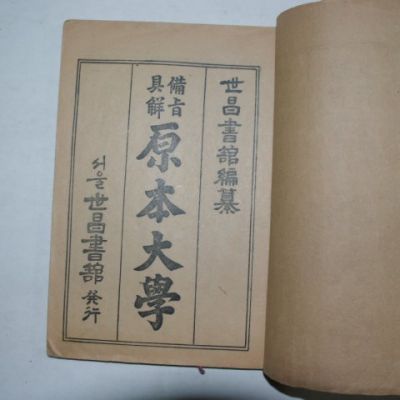 世昌書舘編纂
備旨
具解
原本大學
서울 世昌書舘 発行